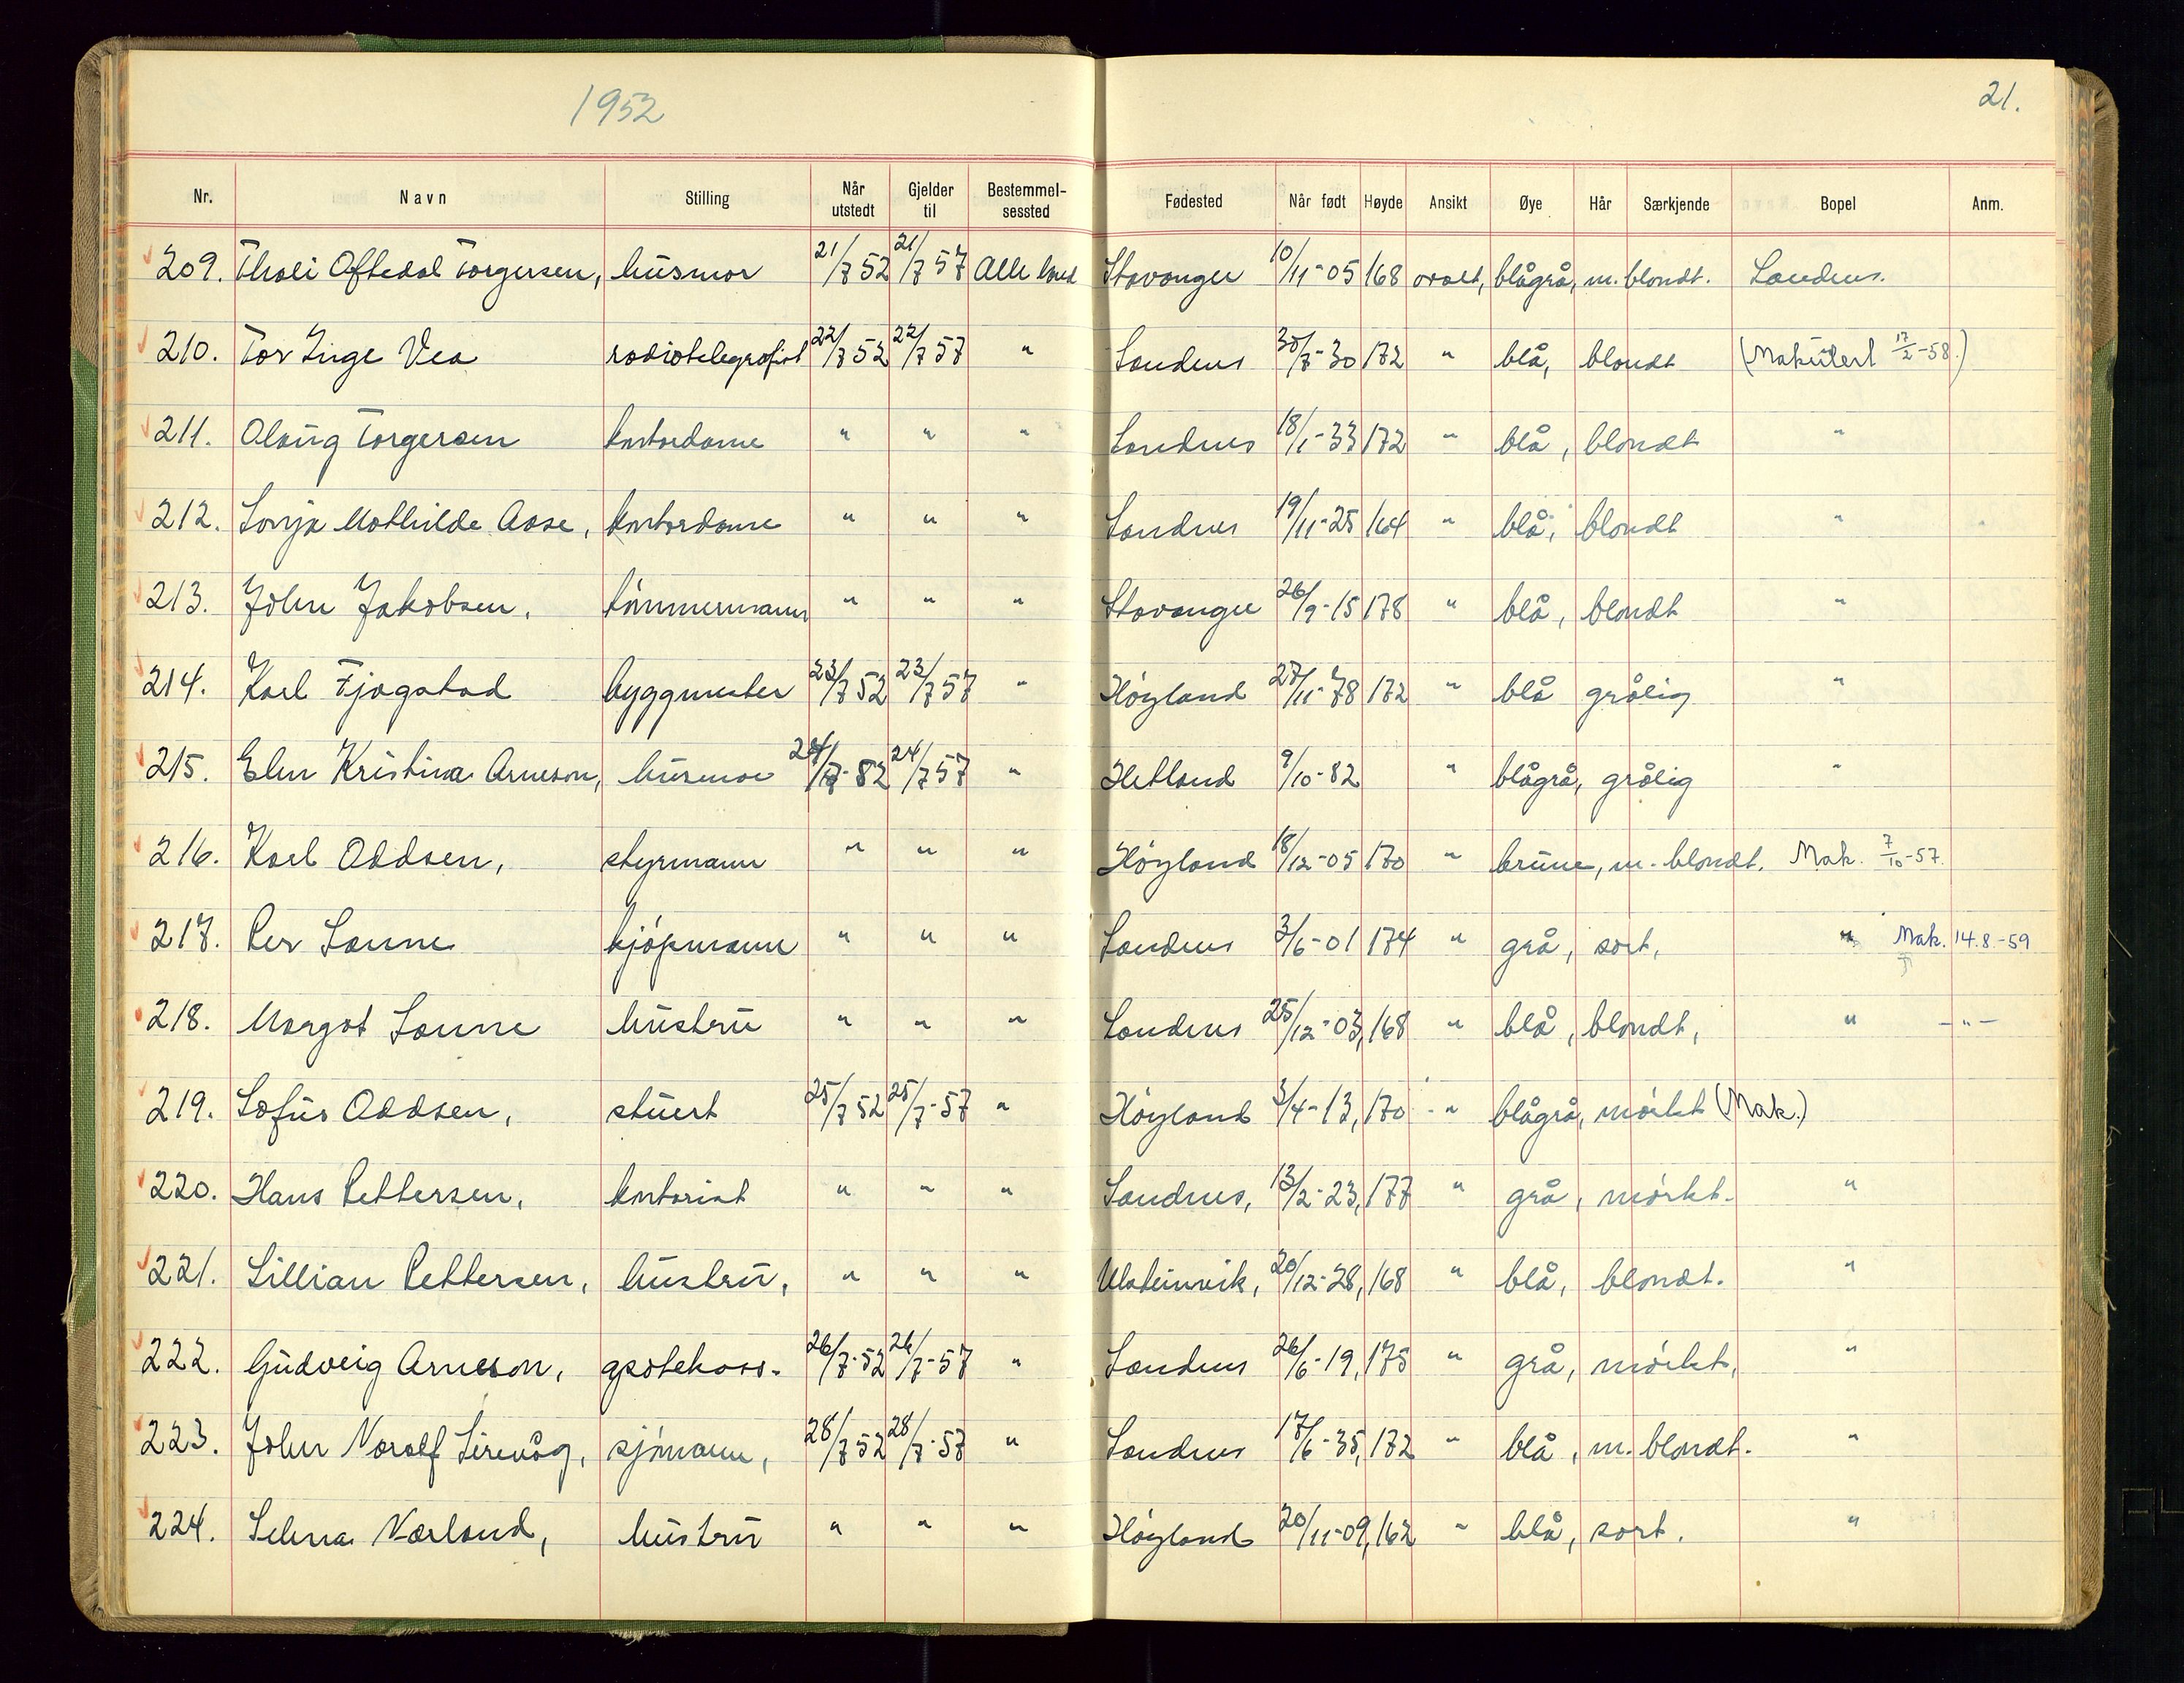 1952
21.
Nr. Navn Stilling Når utstedt Gjelder til Bestemmel-sessted Fødested Når født Høyde Ansikt Øye Hår Særkjende Bopel Anm.
209. Thali Oftedal Torgersen, husmor 21/7 52 21/7 57 Alle land Stavanger 10/11-05 168 ovalt, blågrå, m. blondt. Sandnes.
210. Tor Inge Vea radiotelegrafist 22/7 52 22/7 57 " Sandnes 30/7-30 172 " blå, blondt (Makulert 17/2-58.)
211. Alaug Torgersen kontordame " " " Sandnes 18/1-33 172 " blå, blondt "
212. Sonja Mathilde Aase, kontordame " " " Sandnes 19/11-25 164 " blå, blondt "
213. John Jakobsen, tømmermann " " " Stavanger 26/9-15 178 " blå, blondt "
214. Karl Fjogstad byggmester 23/7 52 23/7 57 " Høyland 27/11-78 172 " blå grålig "
215. Elen Kristina Arneson, husmor 24/7-82 24/7 57 " Hetland 9/10-82 " blågrå, grålig "
216. Karl Oddsen, styrmann " " " Høyland 18/12-05 170 " brune, m. blondt. Mak. 7/10-57.
217. Per Sanne kjøpmann " " " Sandnes 3/6-01 174 " grå, sort, " Mak. 14.8.-59
218. Margot Sanne hustru " " " Sandnes 25/12-03, 168 " blå, blondt, " -"-
219. Sofus Oddsen, stuert 25/7 52 25/7-57 " Høyland 3/4-13, 170 " blågrå, mørkt (Mak.)
220. Hans Pettersen, kontorist " " " Sandnes, 13/2-23, 177 " grå, mørkt. "
221. Lillian Pettersen, hustru, " " " Ulsteinvik, 20/12-28, 168 " blå, blondt. "
222. Gudveig Arneson, apotekass. 26/7-52 26/7-57 " Sandnes 26/6-19, 175 " grå, mørkt, "
223. John Naralf Sirevåg, sjømann, 28/7 52 28/7-57 " Sandnes 17/6-35, 172 " blå, m. blondt. "
224. Selma Nærland, hustru " " " Høyland 20/11-09, 162 " blå, sort. "